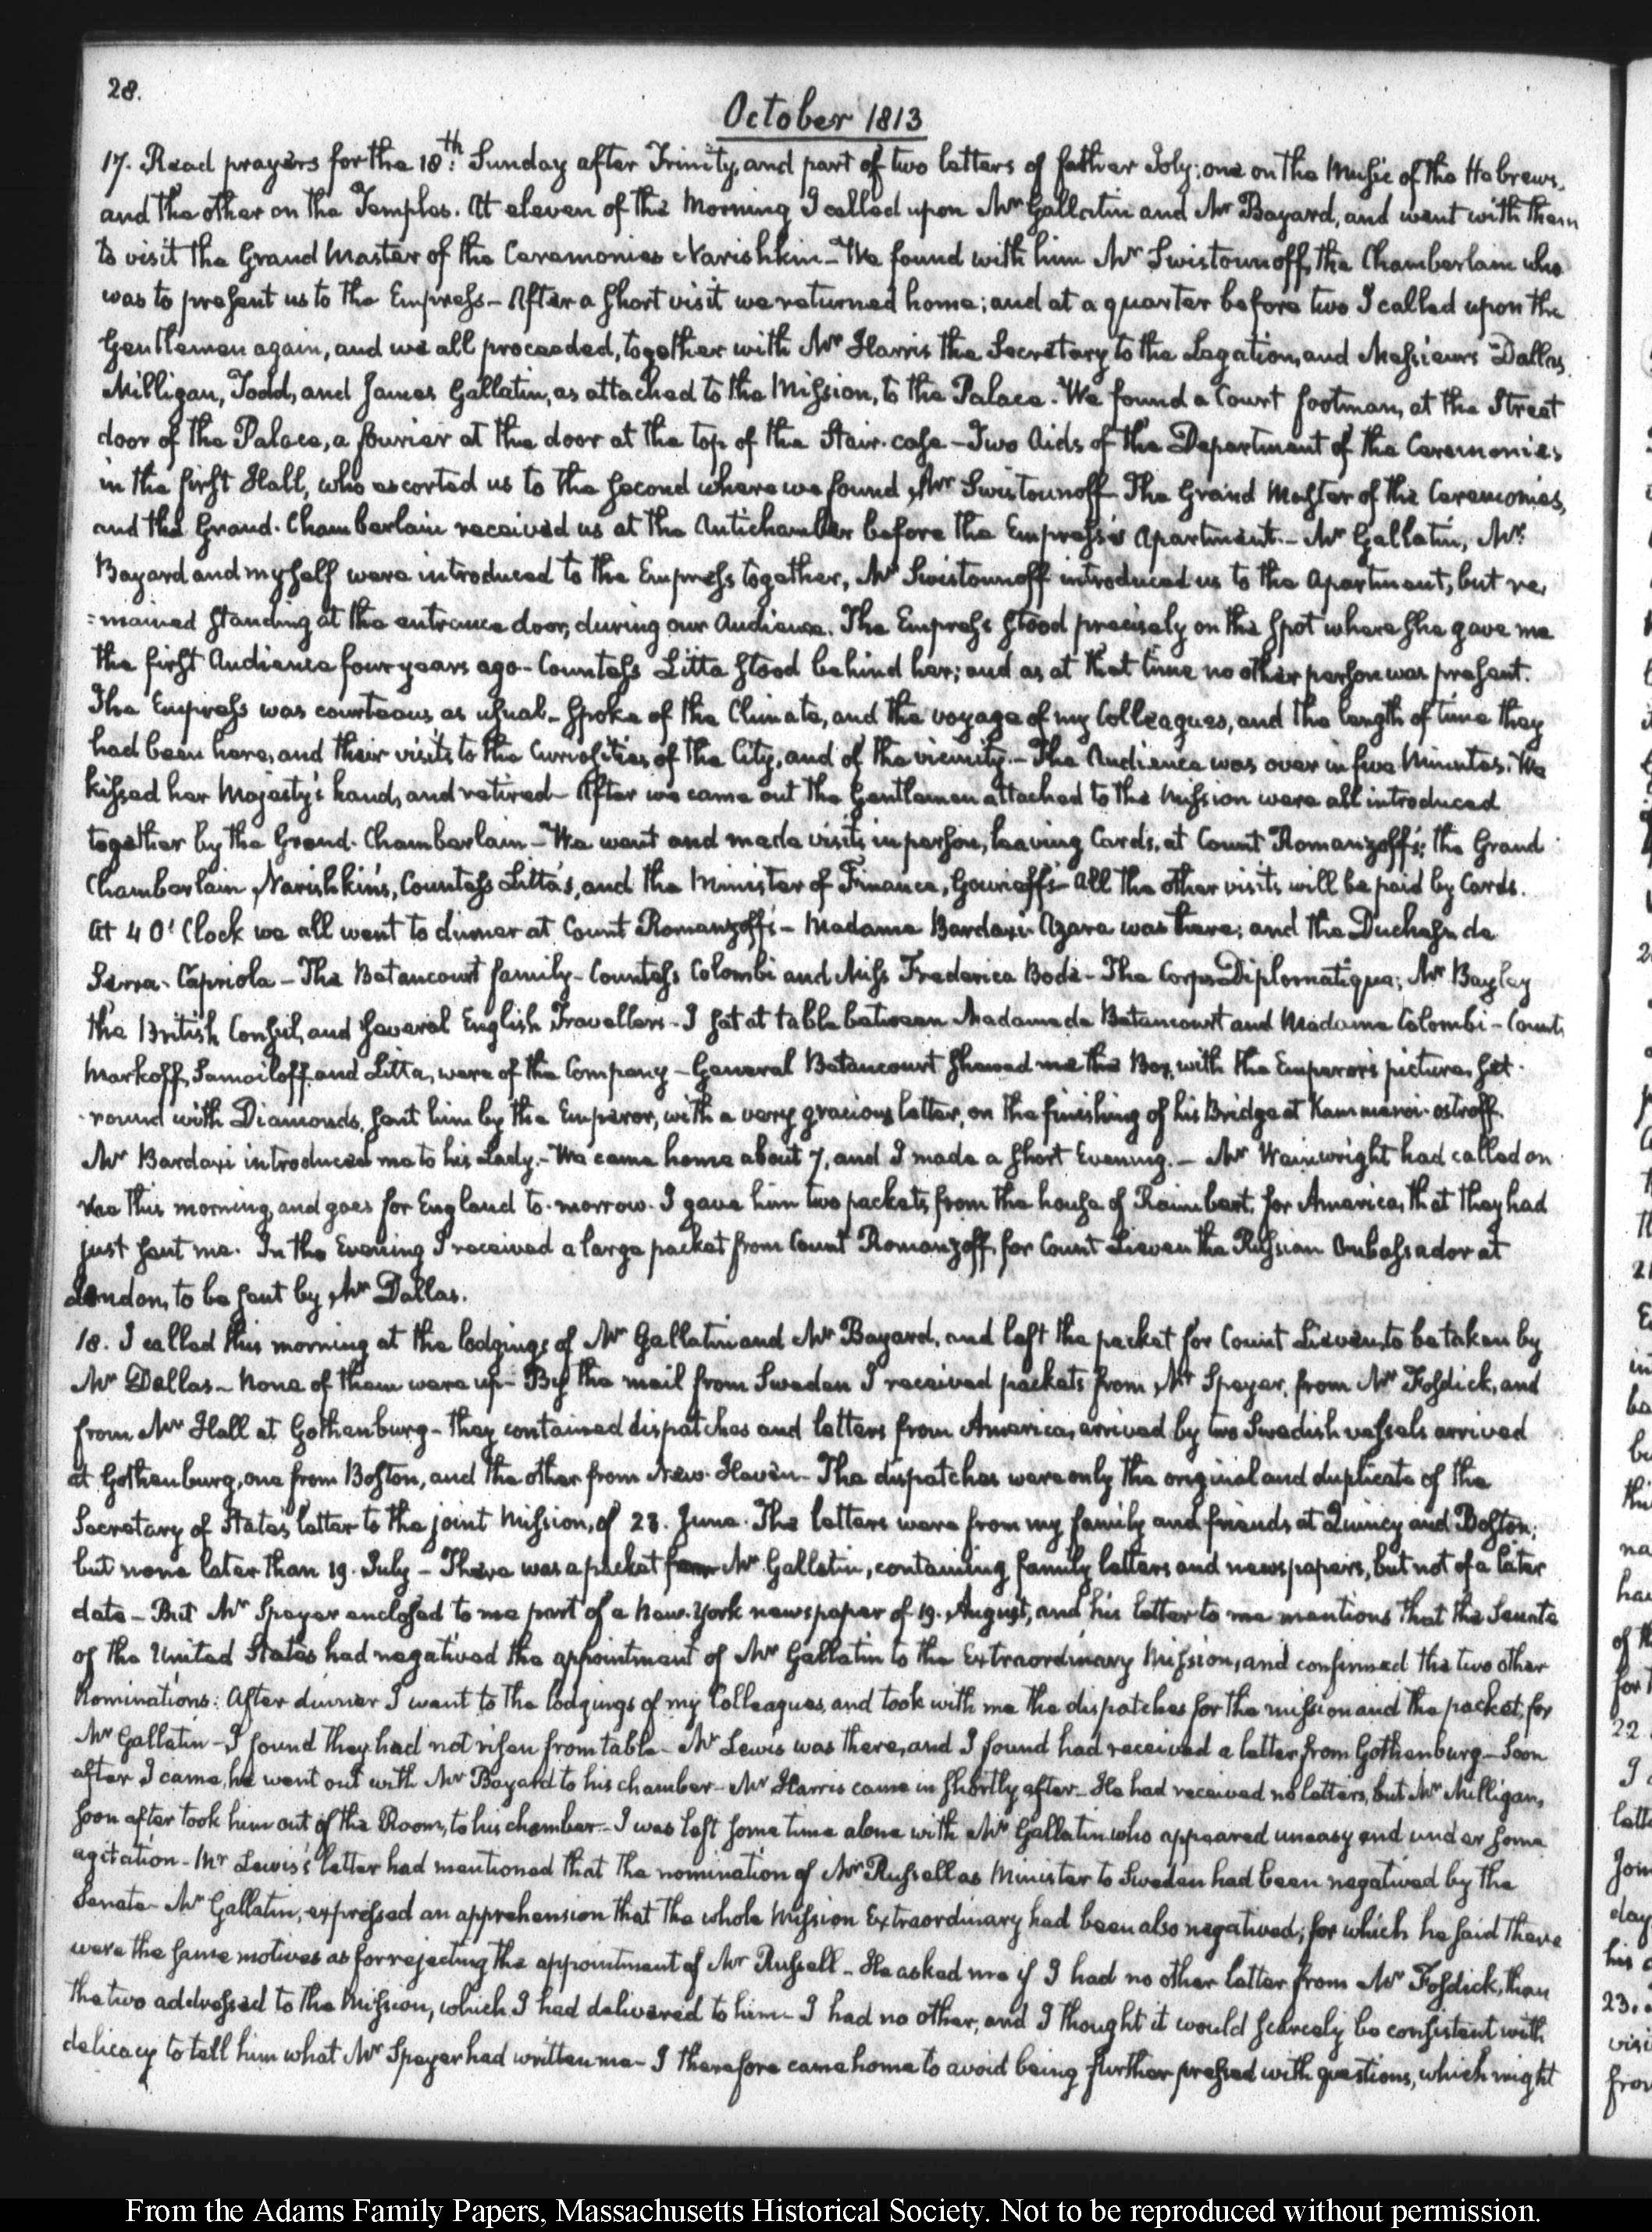 28.
October 1813
17. Read prayers for the 18.th Sunday after Trinity, and part of two letters of father Joly; one on the Music of the Hebrews,
and the other on the Temples. At eleven of the Morning I called upon Mr Gallatin and Mr Bayard, and went with them
to visit the Grand Master of the Ceremonies Narishkin - We found with him Mr Swistounoff, the Chamberlain who
was to present us to the Empress - After a short visit we returned home; and at a quarter before two I called upon the
Gentlemen again, and we all proceeded, together with Mr Harris the Secretary to the Legation, and Messieurs Dallas,
Milligan, Todd, and James Gallatin, as attached to the Mission, to the Palace. We found a Court footman, at the Street
door of the Palace, a fourier at the door at the top of the Stair-case - Two Aids of the Department of the Ceremonies
in the first Hall, who escorted us to the second where we found Mr Swistounoff - The Grand Master of the Ceremonies,
and the Grand-Chamberlain received us at the Antichamber before the Empress's Apartment. - Mr Gallatin, Mr
Bayard and myself were introduced to the Empress together, Mr Swistounoff introduced us to the Apartment, but re,
=mained standing at the entrance door, during our Audience. The Empress stood precisely on the spot where she gave me
the first Audience four years ago - Countess Litta stood behind her; and as at that time no other person was present.
The Empress was courteous as usual - Spoke of the Climate, and the voyage of my Colleagues, and the length of time they
had been here, and their visits to the Curiosities of the City, and of the vicinity. - The Audience was over in five Minutes. We
kissed her Majesty's hand, and retired - After we came out the Gentlemen attached to the Mission were all introduced
together by the Grand-Chamberlain - We went and made visits in person, leaving Cards, at Count Romanzoff's; the Grand
Chamberlain Narishkin's, Countess Litta's, and the Minister of Finance, Gourieff's - All the other visits will be paid by Cards.
At 4 O'Clock we all went to dinner at Count Romanzoff's - Madame Bardaxi Azara was there; and the Duchess de
Serra-Capriola - The Betancourt family - Countess Colombi and Miss Frederica Bode - The Corps Diplomatique; Mr Bayley
the British Consul, and several English Travellers - I sat at table between Madame de Betancourt and Madame Colombi - Counts
Markoff, Samoiloff and Litta, were of the Company - General Betancourt shewed me the Box, with the Emperor's picture, set
round with Diamonds, sent him by the Emperor, with a very gracious letter, on the finishing of his Bridge at Kammenoi-ostroff.
Mr Bardaxi introduced me to his Lady. - We came home about 7, and I made a short Evening. - Mr Wainwright had called on
me this morning, and goes for England to-morrow. I gave him two packets from the house of Raimbert, for America, that they had
just sent me. In the Evening I received a large packet from Count Romanzoff, for Count Lieven the Russian Ambassador at
London, to be sent by Mr Dallas.
18. I called this morning at the lodgings of Mr Gallatin and Mr Bayard, and left the packet for Count Lieven, to be taken by
Mr Dallas - None of them were up - By the mail from Sweden I received packets from Mr Speyer, from Mr Fosdick, and
from Mr Hall at Gothenburg - they contained dispatches and letters from America, arrived by two Swedish vessels arrived
at Gothenburg, one from Boston, and the other from New-Haven - The dispatches were only the original and duplicate of the
Secretary of State's letter to the joint Mission, of 23. June. The letters were from my family and friends at Quincy and Boston;
but none later than 19. July - There was a packet for Mr Gallatin, containing family letters and newspapers, but not of a later
date - But Mr Speyer enclosed to me part of a New-York newspaper of 19. August, and his letter to me mentions that the Senate
of the United States had negatived the appointment of Mr Gallatin to the Extraordinary Mission, and confirmed the two other
Nominations. After dinner I went to the lodgings of my Colleagues, and took with me the dispatches for the mission and the packet, for
Mr Gallatin - I found they had not risen from table - Mr Lewis was there, and I found had received a letter from Gothenburg - Soon
after I came, he went out with Mr Bayard to his chamber - Mr Harris came in shortly after - He had received no letters, but Mr Milligan,
soon after took him out of the Room, to his chamber - I was left some time alone with Mr Gallatin who appeared uneasy and under some
agitation - Mr Lewis's letter had mentioned that the nomination of Mr Russell as Minister to Sweden had been negatived by the
Senate - Mr Gallatin, expressed an apprehension that the whole Mission Extraordinary had been also negatived; for which he said there
were the same motives as for rejecting the appointment of Mr Russell - He asked me if I had no other letter from Mr Fosdick, than
the two addressed to the Mission, which I had delivered to him - I had no other, and I thought it would scarcely be consistent with
delicacy to tell him what Mr Speyer had written me - I therefore came home to avoid being further pressed with questions, which might
From the Adams Family Papers, Massachusetts Historical Society. Not to be reproduced without permission.